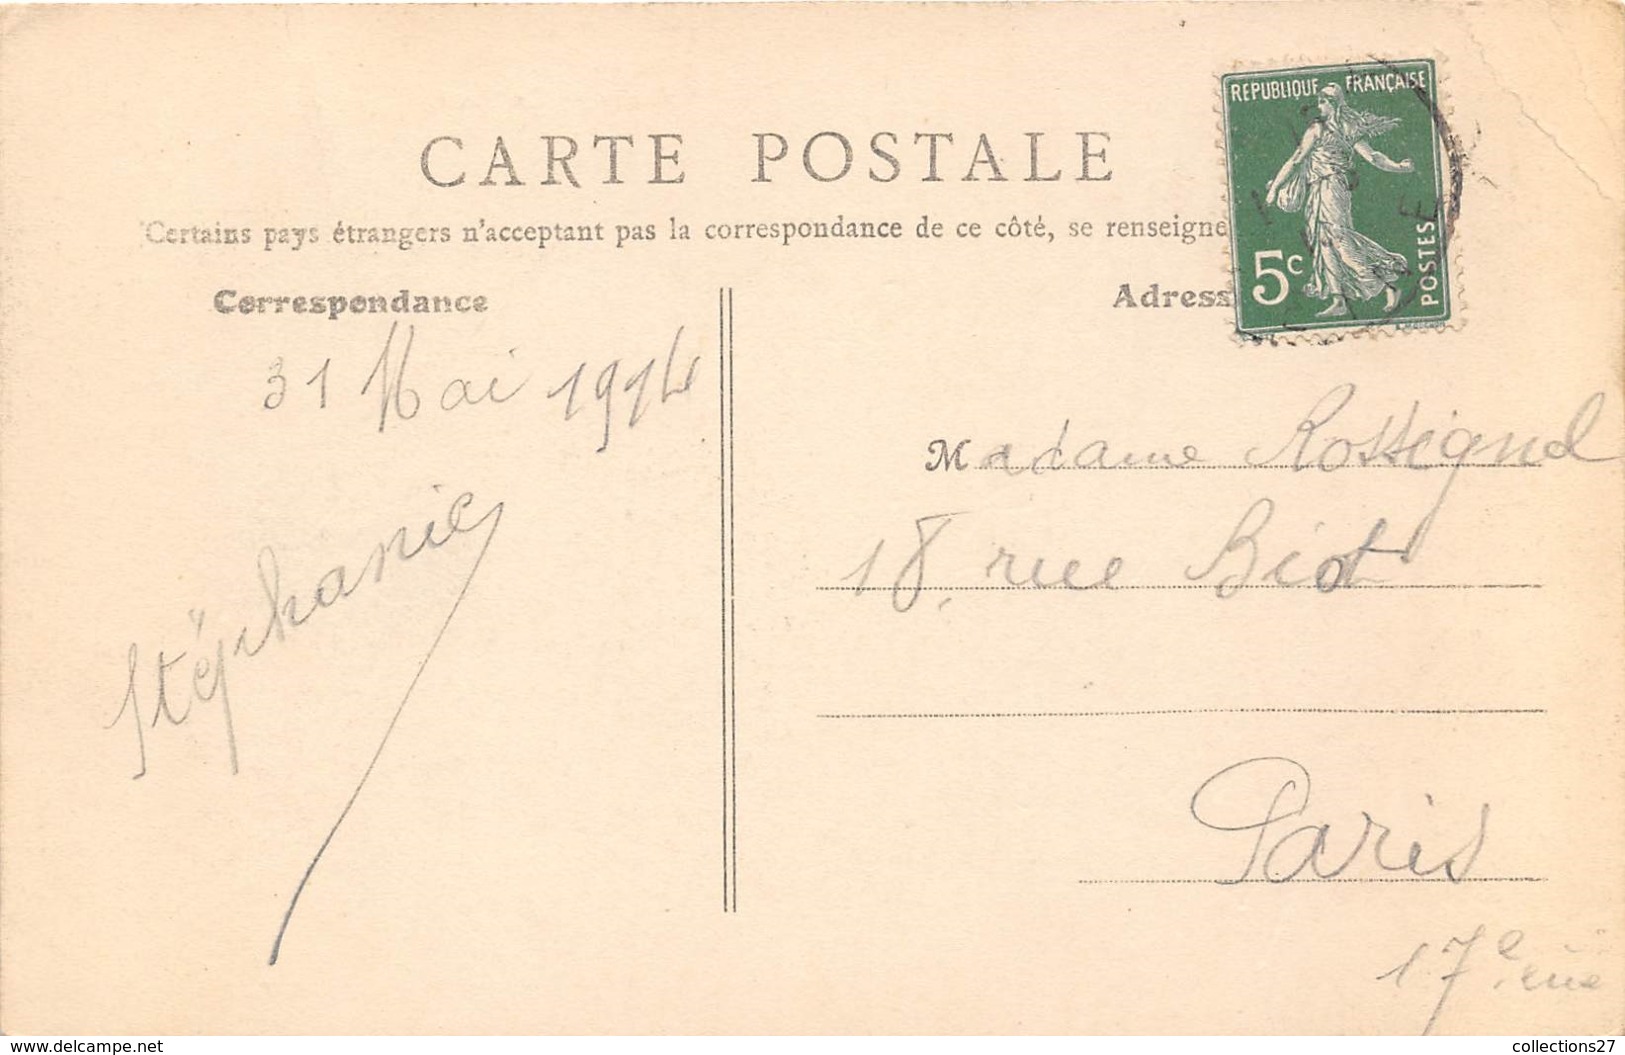 CARTE POSTALE
Certains pays étrangers n'acceptant pas la correspondance de ce côté, se renseigne
Correspondance
Adress
REPUBLIQUE FRANÇAISE
5c
POSTES
31 Mai 1914
Stéphanie
Madame Rossignol
18, rue Biot
Paris
17e
www.delcampe.net
collections27